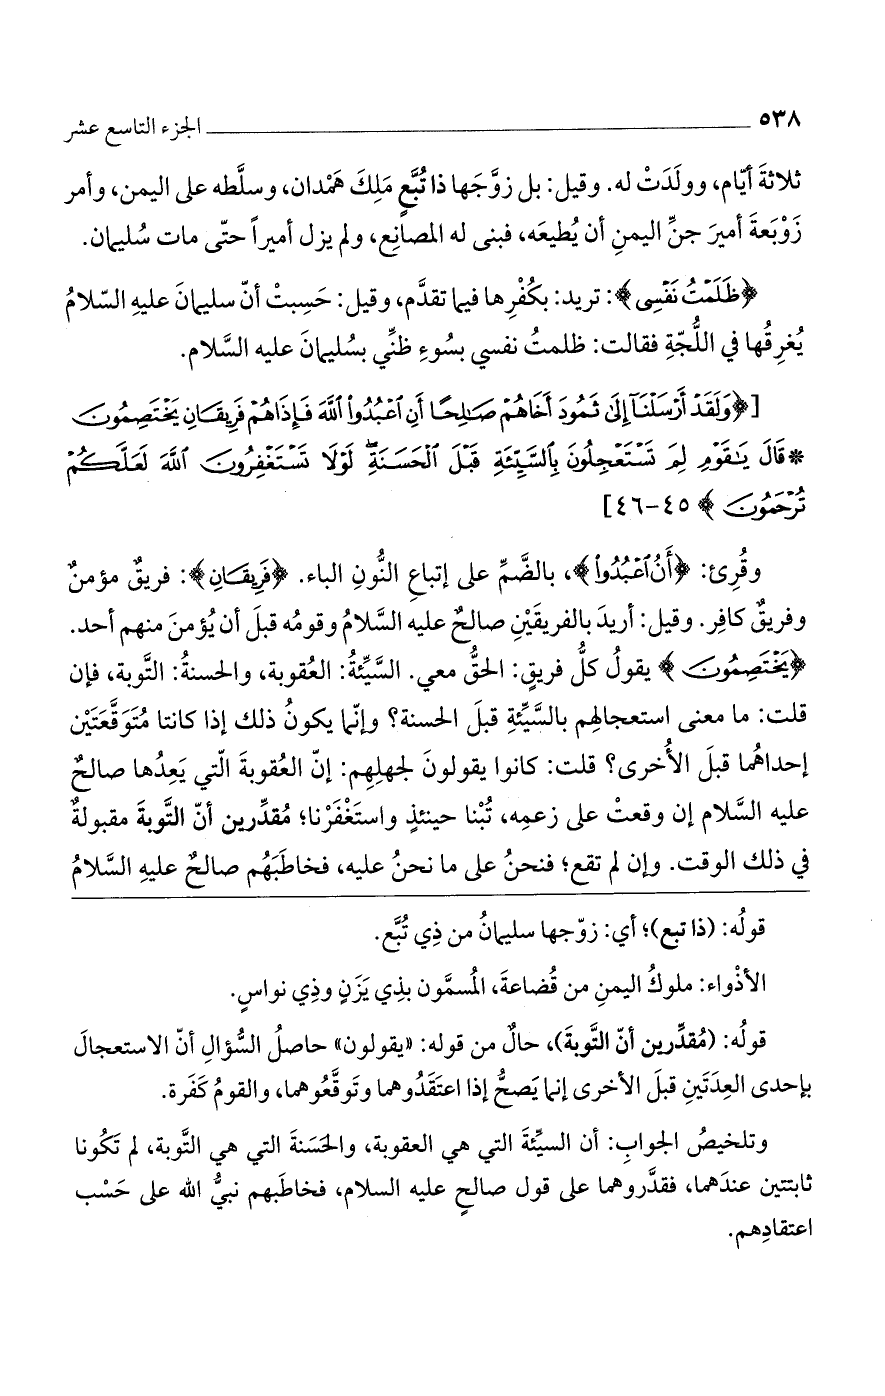 ٥٣٨ ــــــــ الجزء التاسع عشر
ثلاثةَ أيّام، وولَدَتْ له. وقيل: بل زوَّجَها ذا تُبَّعٍ مَلِكَ هَمْدان، وسلَّطه على اليمن، وأمر
زَوْبَعةَ أميرَ جنِّ اليمنِ أن يُطيعَه، فبنى له المصانِع، ولم يزل أميراً حتّى مات سُليمان.
﴿ظَلَمْتُ نَفْسِى﴾: تريد: بكُفْرِها فيما تقدَّم، وقيل: حَسِبتْ أنّ سليمانَ عليهِ السّلامُ
يُغرِقُها في اللُّجّةِ فقالت: ظلمتُ نفسي بسُوءِ ظنِّي بسُليمانَ عليه السَّلام.
[﴿وَلَقَدْ أَرْسَلْنَآ إِلَىٰ ثَمُودَ أَخَاهُمْ صَـٰلِحًا أَنِ ٱعْبُدُوا۟ ٱللَّهَ فَإِذَا هُمْ فَرِيقَانِ يَخْتَصِمُونَ
*قَالَ يَـٰقَوْمِ لِمَ تَسْتَعْجِلُونَ بِٱلسَّيِّئَةِ قَبْلَ ٱلْحَسَنَةِ ۖ لَوْلَا تَسْتَغْفِرُونَ ٱللَّهَ لَعَلَّكُمْ
تُرْحَمُونَ﴾ ٤٥-٤٦]
وقُرِئ: ﴿أَنُ ٱعْبُدُوا۟﴾، بالضَّمِّ على إتباعِ النُّونِ الباء. ﴿فَرِيقَانِ﴾: فريقٌ مؤمنٌ
وفريقٌ كافِر. وقيل: أريدَ بالفريقَيْنِ صالحٌ عليه السَّلامُ وقومُه قبلَ أن يُؤمنَ منهم أحد.
﴿يَخْتَصِمُونَ﴾ يقولُ كلُّ فريقٍ: الحقُّ معي. السَّيِّئةُ: العُقوبة، والحسنةُ: التَّوبة، فإن
قلت: ما معنى استعجالهِم بالسَّيِّئةِ قبلَ الحسنة؟ وإنّما يكونُ ذلك إذا كانتا مُتَوَقَّعَتَيْن
إحداهُما قبلَ الأُخرى؟ قلت: كانوا يقولونَ لجهلِهِم: إنّ العُقوبةَ الّتي يَعِدُها صالحٌ
عليه السَّلام إن وقعتْ على زعمِه، تُبْنا حينئذٍ واستَغْفَرْنا؛ مُقدِّرين أنّ التَّوبةَ مقبولةٌ
في ذلك الوقت. وإن لم تقع؛ فنحنُ على ما نحنُ عليه، فخاطَبَهُم صالحٌ عليهِ السَّلامُ
قولُه: (ذا تبع)؛ أي: زوّجها سليمانُ من ذِي تُبَّع.
الأذْواء: ملوكُ اليمنِ من قُضاعةَ، المُسمَّون بذِي يَزَنٍ وذِي نواسٍ.
قولُه: (مُقدِّرين أنّ التَّوبةَ)، حالٌ من قوله: «يقولون» حاصلُ السُّؤالِ أنّ الاستعجالَ
بإحدى العِدَتَينِ قبلَ الأخرى إنما يَصحُّ إذا اعتَقَدُوهما وتَوقَّعُوهما، والقومُ كَفَرة.
وتلخيصُ الجوابِ: أن السيِّئةَ التي هي العقوبة، والحَسَنةَ التي هي التَّوبة، لم تَكُونا
ثابتتين عندَهما، فقدَّروهما على قول صالحٍ عليه السلام، فخاطَبهم نبيُّ الله على حَسْب
اعتقادِهم.